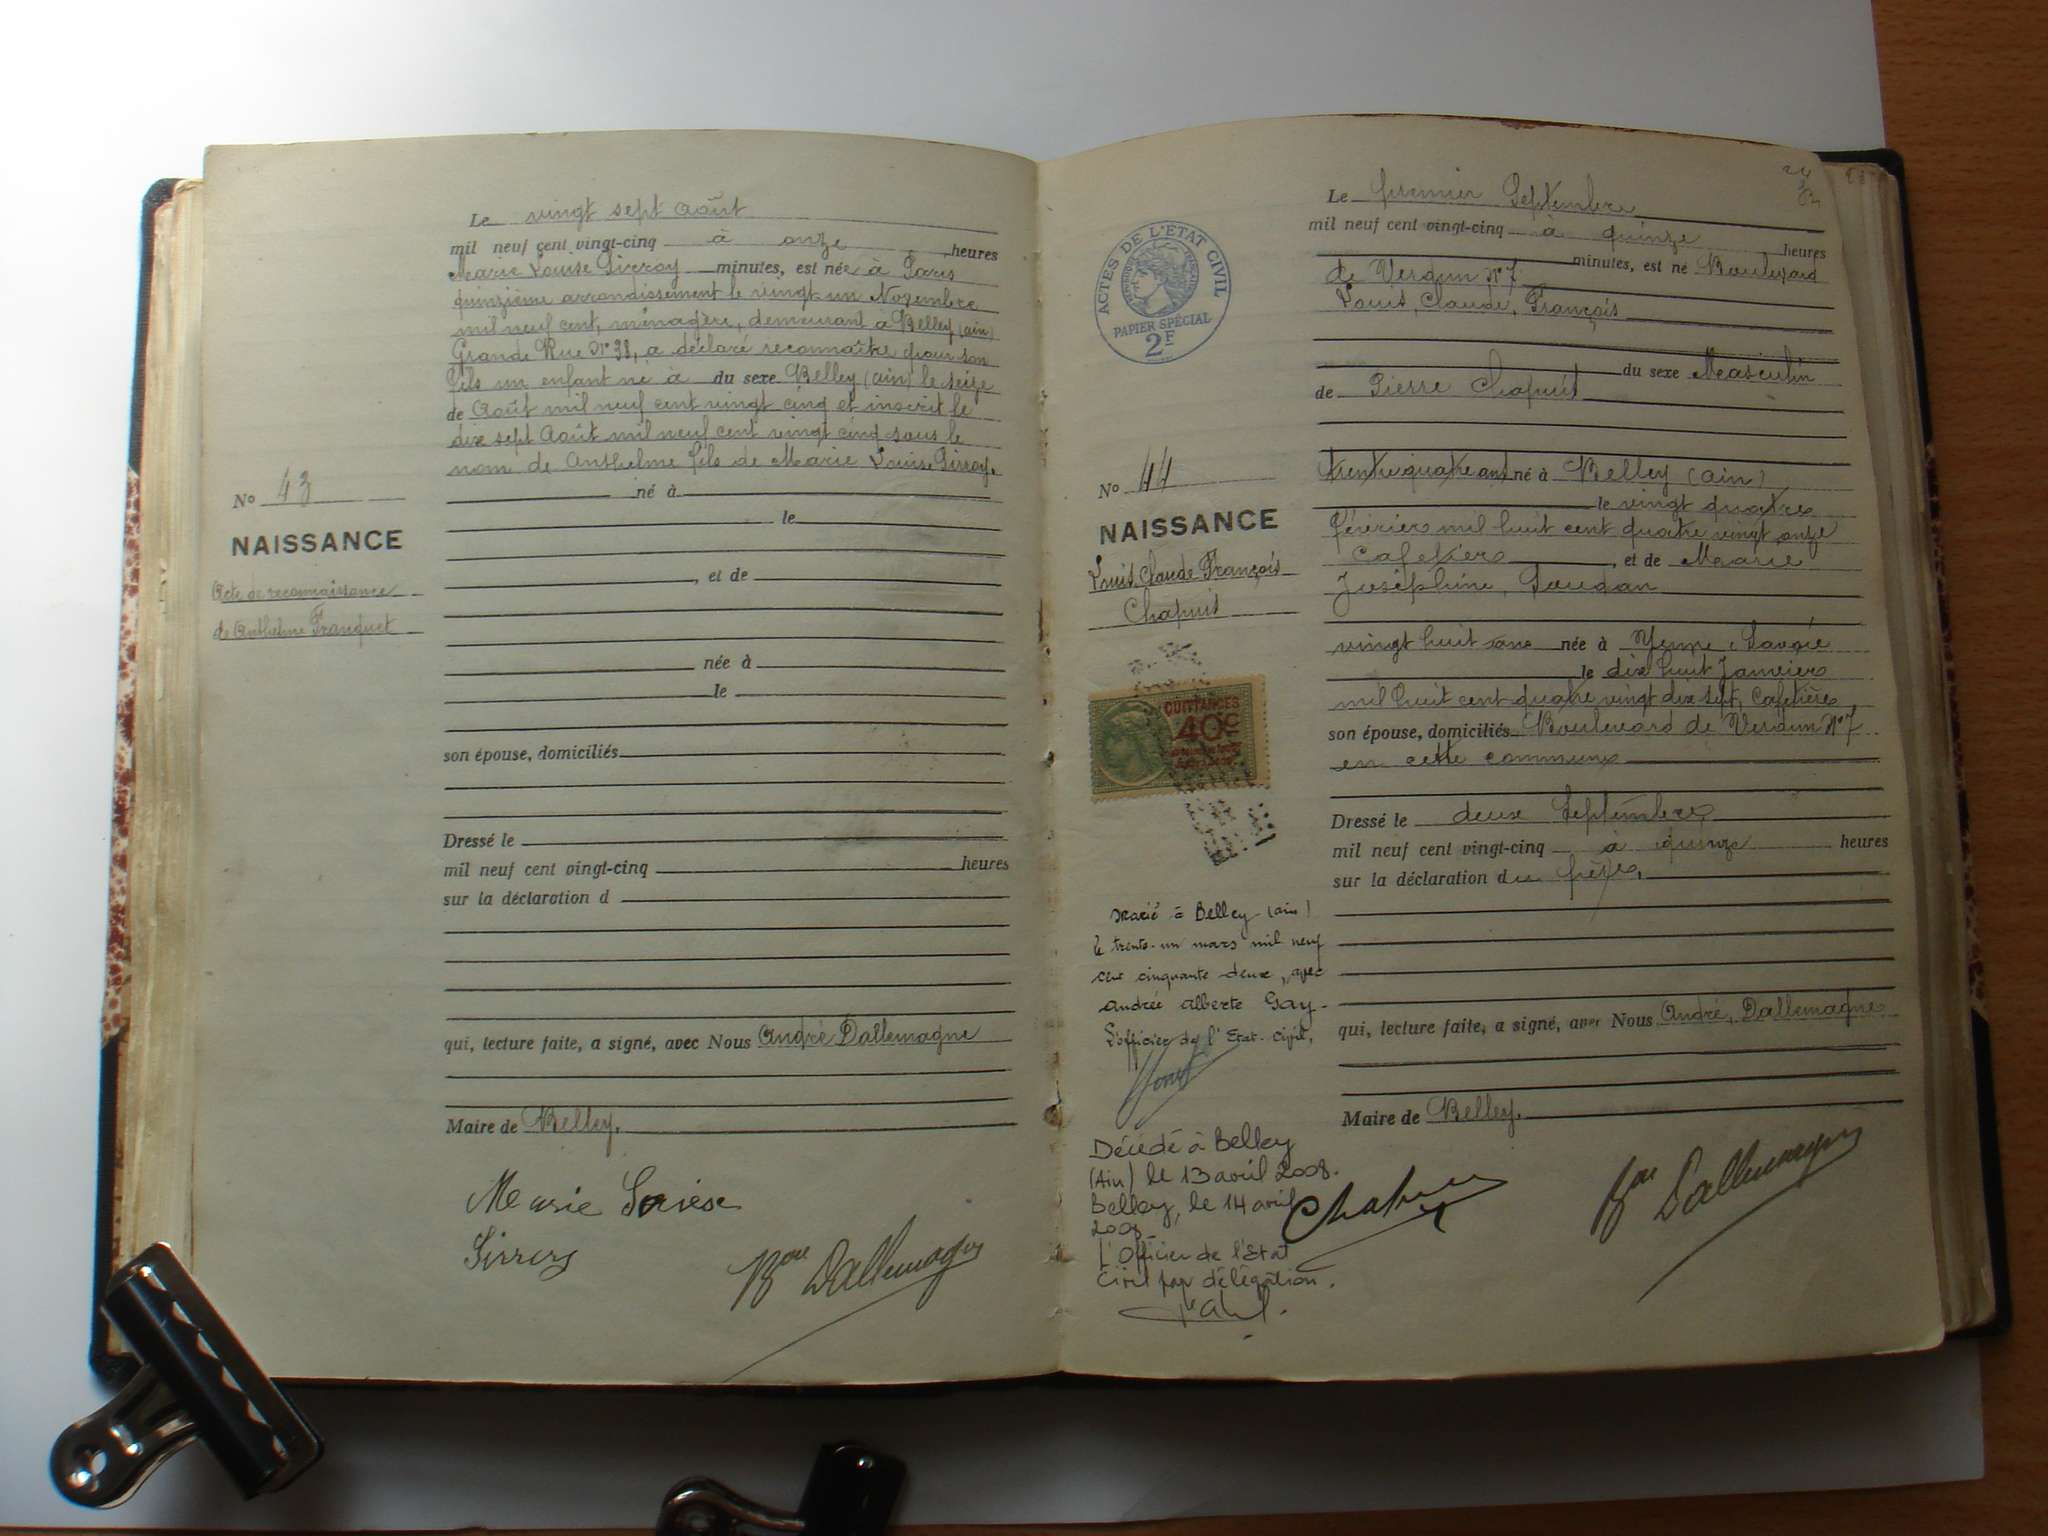 Le vingt sept Août
mil neuf cent vingt-cinq à onze heures
Marie Louise Sirroy minutes, est née à Paris
quinzième arrondissement le vingt un Novembre
mil neuf cent, ménagère, demeurant à Belley (ain)
Grande Rue N° 38, a déclaré reconnaître pour son
fils un enfant né à du sexe Belley (ain) le seize
de Août mil neuf cent vingt cinq et inscrit le
dix sept Août mil neuf cent vingt cinq sous le
nom de Anthelme fils de Marie Louise Sirroy.
No 43
né à
le
NAISSANCE
, et de
Acte de reconnaissance
de Anthelme Franquet
née à
le
son épouse, domiciliés
Dressé le
mil neuf cent vingt-cinq heures
sur la déclaration d
qui, lecture faite, a signé, avec Nous André Dallemagne
Maire de Belley.
Marie
Bon Dallemagne
24
Le premier Septembre
mil neuf cent vingt-cinq à quinze heures
minutes, est né Boulevard
de Verdun N° 7
Louis, Claude, François
ACTES DE L'ÉTAT CIVIL
RÉPUBLIQUE FRANÇAISE
PAPIER SPÉCIAL
2F
du sexe Masculin
de Pierre Chapuis
trente quatre ans né à Belley (ain)
No 44
le vingt quatre
NAISSANCE
février mil huit cent quatre vingt onze
Cafetier, et de Marie
Louis Claude François
Chapuis
Joséphine, Goudan
vingt huit ans née à Yenne, Savoie
le dix huit Janvier
mil huit cent quatre vingt dix sept, Cafetière,
QUITTANCES
40c
son épouse, domiciliés Boulevard de Verdun N° 7
en cette commune
Dressé le deux Septembre
mil neuf cent vingt-cinq à quinze heures
sur la déclaration du père.
Marié à Belley (ain)
le trente-un mars mil neuf
cent cinquante deux, avec
Andrée Alberte Gay.
L'officier de l'Etat-civil,
qui, lecture faite, a signé, avec Nous André, Dallemagne
Maire de Belley.
Décédé à Belley
(Ain) le 13 avril 2008.
Belley, le 14 avril
2008
L'Officier de l'Etat
Civil par délégation.
Chapuis
Bon Dallemagne